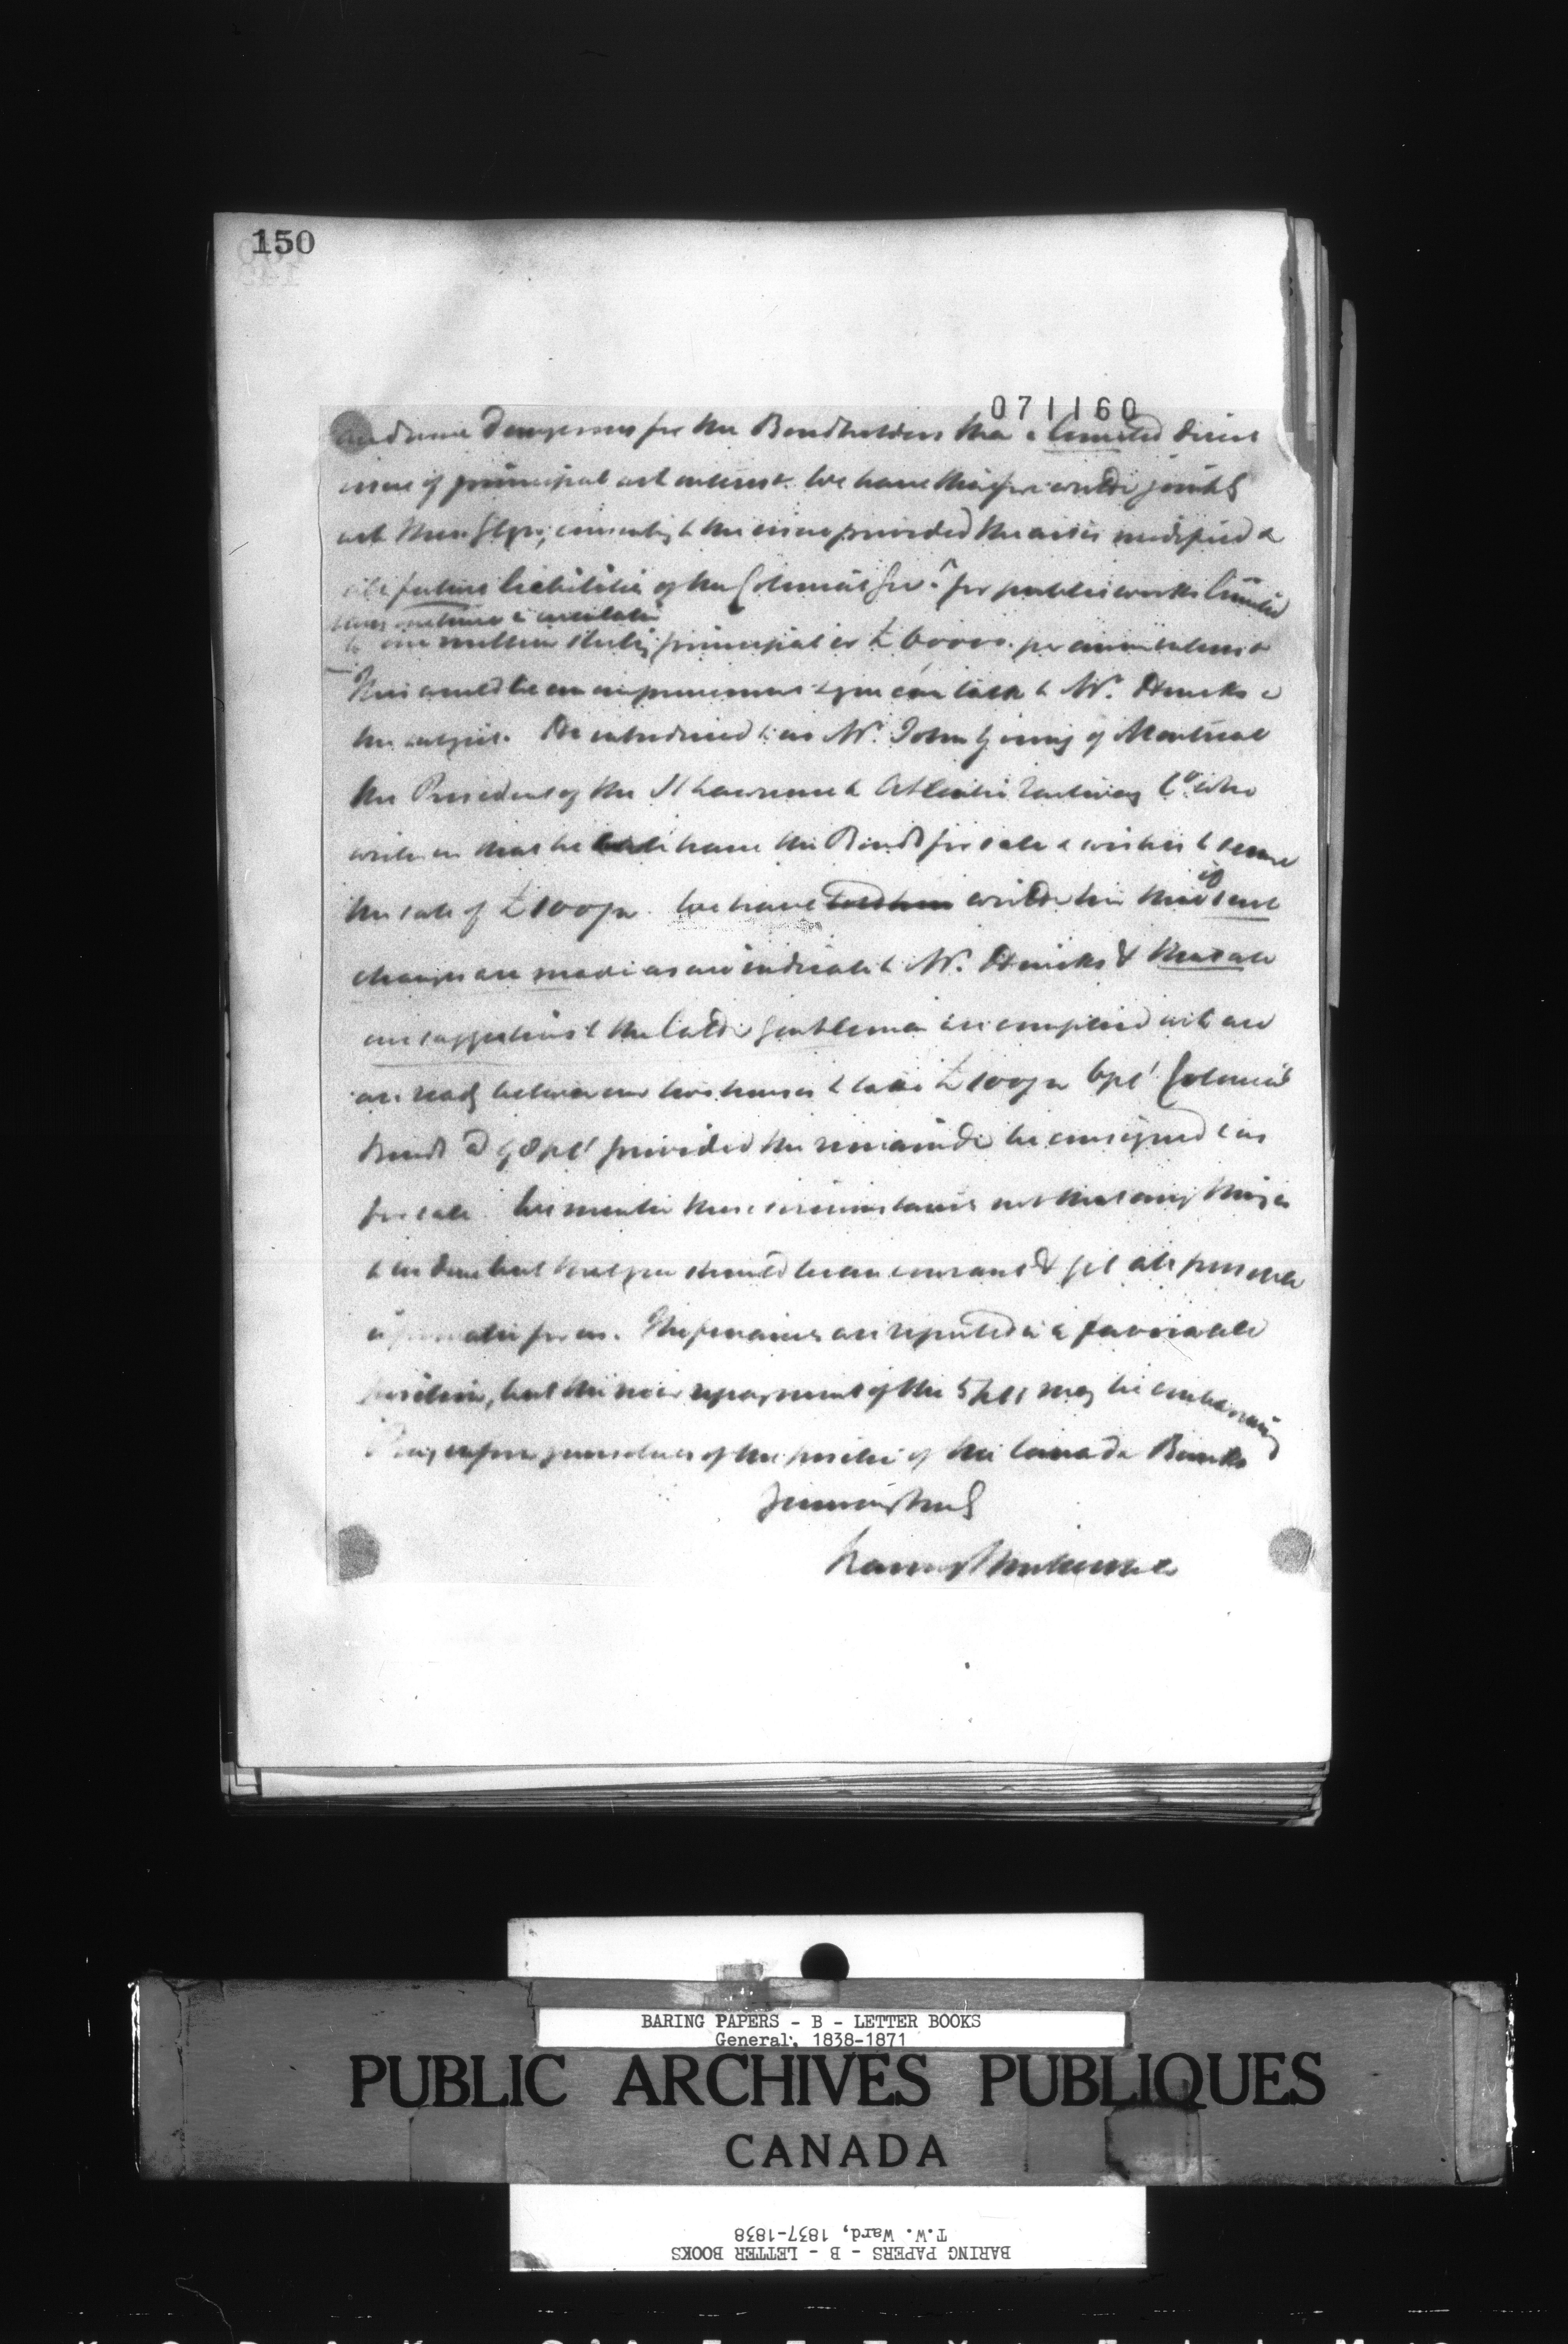 150
071160
and more dangerous for the Bondholders than a limited direct
issue of principal and interest. We have therefore written jointly
with Messrs Glyn, consenting to the issue provided the act is modified &
all future liabilities of the Colonial Govt for public works limited
to one million sterling principal or £60000 per annum interest
This would be an improvement & you can talk to Mr. Hincks on
the subject. He introduced to us Mr. John Young of Montreal
the President of the St Lawrence & Atlantic Railway Co. who
writes us that he have the Bonds for sale & wishes to secure
the sale of £100/m. We have told him written him that if such
changes are made as we indicate to Mr. Hincks & that all
our suggestions to the latter gentleman are complied with we
are ready between our two houses to take £100/m 6 pCt Colonial
Bonds @ 98 pCt provided the remainder be consigned to us
for sale. We mention these circumstances not that any thing is
to be done but that you should be au courant & get all possible
information for us. The finances are reported in a favorable
position, but the near repayment of the 5 pCts may be embarrassing
Pray inform yourselves of the position of the Canada Banks
BARING PAPERS - B - LETTER BOOKS
General, 1838-1871
PUBLIC ARCHIVES PUBLIQUES
CANADA
T.W. Ward, 1837-1838
BARING PAPERS - B - LETTER BOOKS